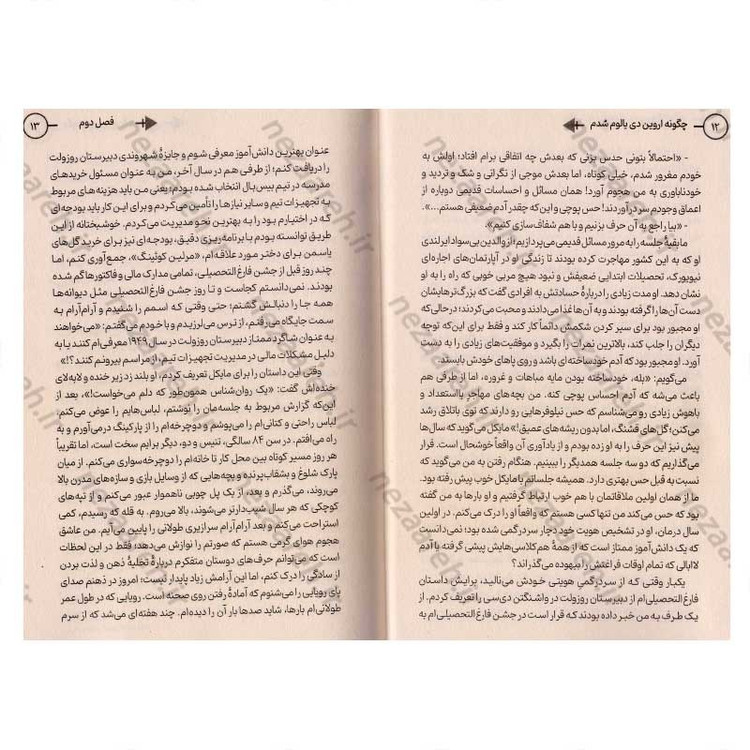 ۱۲ چگونه اروین دی یالوم شدم
- «احتمالاً بتونی حدس بزنی که بعدش چه اتفاقی برام افتاد؛ اولش به
خودم مغرور شدم، خیلی کوتاه، اما بعدش موجی از نگرانی و شک و تردید و
خودناباوری به من هجوم آورد! همان مسائل و احساسات قدیمی دوباره از
اعماق وجودم سر درآوردند! حس پوچی و این که چقدر آدم ضعیفی هستم...».
- «بیا راجع به آن حرف بزنیم و با هم شفاف‌سازی کنیم».
مابقیهٔ جلسه را به مرور مسائل قدیمی می‌پردازیم؛ از والدین بی‌سواد ایرلندی
او که به این کشور مهاجرت کرده بودند تا زندگی او در آپارتمان‌های اجاره‌ای
نیویورک، تحصیلات ابتدایی ضعیفش و نبود هیچ مربی خوبی که راه را به او
نشان دهد. او مدت زیادی را دربارهٔ حسادتش به افرادی گفت که بزرگ‌ترهایشان
دست آن‌ها را گرفته بودند و به آن‌ها غذا می‌دادند و محبت می‌کردند؛ درحالی‌که
او مجبور بود برای سیر کردن شکمش دائماً کار کند و فقط برای این‌که توجه
دیگران را جلب کند، بالاترین نمرات را بگیرد و موفقیت‌های زیادی را به دست
آورد. او مجبور بود که آدم خودساخته‌ای باشد و روی پاهای خودش بایستد.
می‌گویم: «بله، خودساخته بودن مایه مباهات و غروره، اما از طرفی هم
باعث می‌شه که آدم احساس پوچی کنه. من بچه‌های مهاجر بااستعداد و
باهوش زیادی رو می‌شناسم که حس نیلوفرهایی رو دارند که توی باتلاق رشد
می‌کنن؛ گل‌های قشنگ، اما بدون ریشه‌های عمیق!» مایکل می‌گوید که سال‌ها
پیش نیز این حرف را به او زده بودم و از یادآوری آن واقعاً خوشحال است. قرار
می‌گذاریم که دو سه جلسه همدیگر را ببینیم. هنگام رفتن به من می‌گوید که
نسبت به قبل حس بهتری دارد. همیشه جلساتم با مایکل خوب پیش رفته بود.
ما از همان اولین ملاقاتمان با هم خوب ارتباط گرفتیم و او بارها به من گفته
بود که حس می‌کند من تنها کسی هستم که واقعاً او را درک می‌کنم. در اولین
سال درمان، او در تشخیص هویت خود دچار سردرگمی شده بود؛ نمی‌دانست
که یک دانش‌آموز ممتاز است که از همهٔ هم‌کلاسی‌هایش پیشی گرفته یا آدم
لاابالی که تمام اوقات فراغتش را بیهوده می‌گذراند؟
یکبار وقتی که از سردرگمی هویتی خودش می‌نالید، برایش داستان
فارغ‌التحصیلی‌ام از دبیرستان روزولت در واشنگتن دی‌سی را تعریف کردم. از
یک طرف به من خبر داده بودند که قرار است در جشن فارغ‌التحصیلی‌ام به
فصل دوم ۱۳
عنوان بهترین دانش‌آموز معرفی شوم و جایزهٔ شهروندی دبیرستان روزولت
را دریافت کنم؛ از طرفی هم در سال آخر، من به عنوان مسئول خریدهای
مدرسه در تیم بیس‌بال انتخاب شده بودم؛ یعنی من باید هزینه‌های مربوط
به تجهیزات تیم و سایر نیازها را تأمین می‌کردم و برای این کار باید بودجه‌ای
که در اختیارم بود را به بهترین نحو مدیریت می‌کردم. خوشبختانه از این
طریق توانسته بودم با برنامه‌ریزی دقیق، بودجه‌ای نیز برای خرید گل‌های
یاسمن برای دختر مورد علاقه‌ام، «مرلین کوئینگ»، جمع‌آوری کنم، اما
چند روز قبل از جشن فارغ‌التحصیلی، تمامی مدارک مالی و فاکتورها گم شده
بودند. نمی‌دانستم کجاست و تا روز جشن فارغ‌التحصیلی مثل دیوانه‌ها
همه جا را دنبالش گشتم؛ حتی وقتی که اسمم را شنیدم و آرام‌آرام به
سمت جایگاه می‌رفتم، از ترس می‌لرزیدم و با خودم می‌گفتم: «می‌خواهند
به عنوان شاگرد ممتاز دبیرستان روزولت در سال ۱۹۴۹ معرفی‌ام کنند یا به
دلیل مشکلات مالی در مدیریت تجهیزات تیم، از مراسم بیرونم کنند؟!»
وقتی این داستان را برای مایکل تعریف کردم، او بلند زد زیر خنده و لابه‌لای
خنده‌اش گفت: «یک روان‌شناس همون‌طور که دلم می‌خواست!»، بعد از
این‌که گزارش مربوط به جلسه‌مان را نوشتم، لباس‌هایم را عوض می‌کنم،
لباس راحتی و کتانی‌ام را می‌پوشم و دوچرخه‌ام را از پارکینگ درمی‌آورم و به
راه می‌افتم. در سن ۸۴ سالگی، تنیس و دو، دیگر برایم سخت است، اما تقریباً
هر روز مسیر کوتاه بین محل کار تا خانه‌ام را دوچرخه‌سواری می‌کنم. از میان
پارک شلوغ و بشقاب‌پرنده و بچه‌هایی که از وسایل بازی و سازه‌های مدرن بالا
می‌روند، می‌گذرم و بعد، از یک پل چوبی ناهموار عبور می‌کنم و از تپه‌های
کوچکی که هر سال شیب‌دارتر می‌شوند، بالا می‌روم. به قله که رسیدم، کمی
استراحت می‌کنم و بعد آرام‌آرام سرازیری طولانی را پایین می‌آیم. من عاشق
هجوم هوای گرمی هستم که صورتم را نوازش می‌دهد؛ فقط در این لحظات
است که می‌توانم حرف‌های دوستان متفکرم دربارهٔ تخلیهٔ ذهن و لذت بردن
از سادگی را درک کنم، اما این آرامش زیاد پایدار نیست؛ امروز در ذهنم صدای
پای رویایی را می‌شنوم که آمادهٔ رفتن روی صحنه است. رویایی که در طول عمر
طولانی‌ام بارها، شاید صدها بار آن را دیده‌ام. چند هفته‌ای می‌شد که از سرم
nezareh.ir